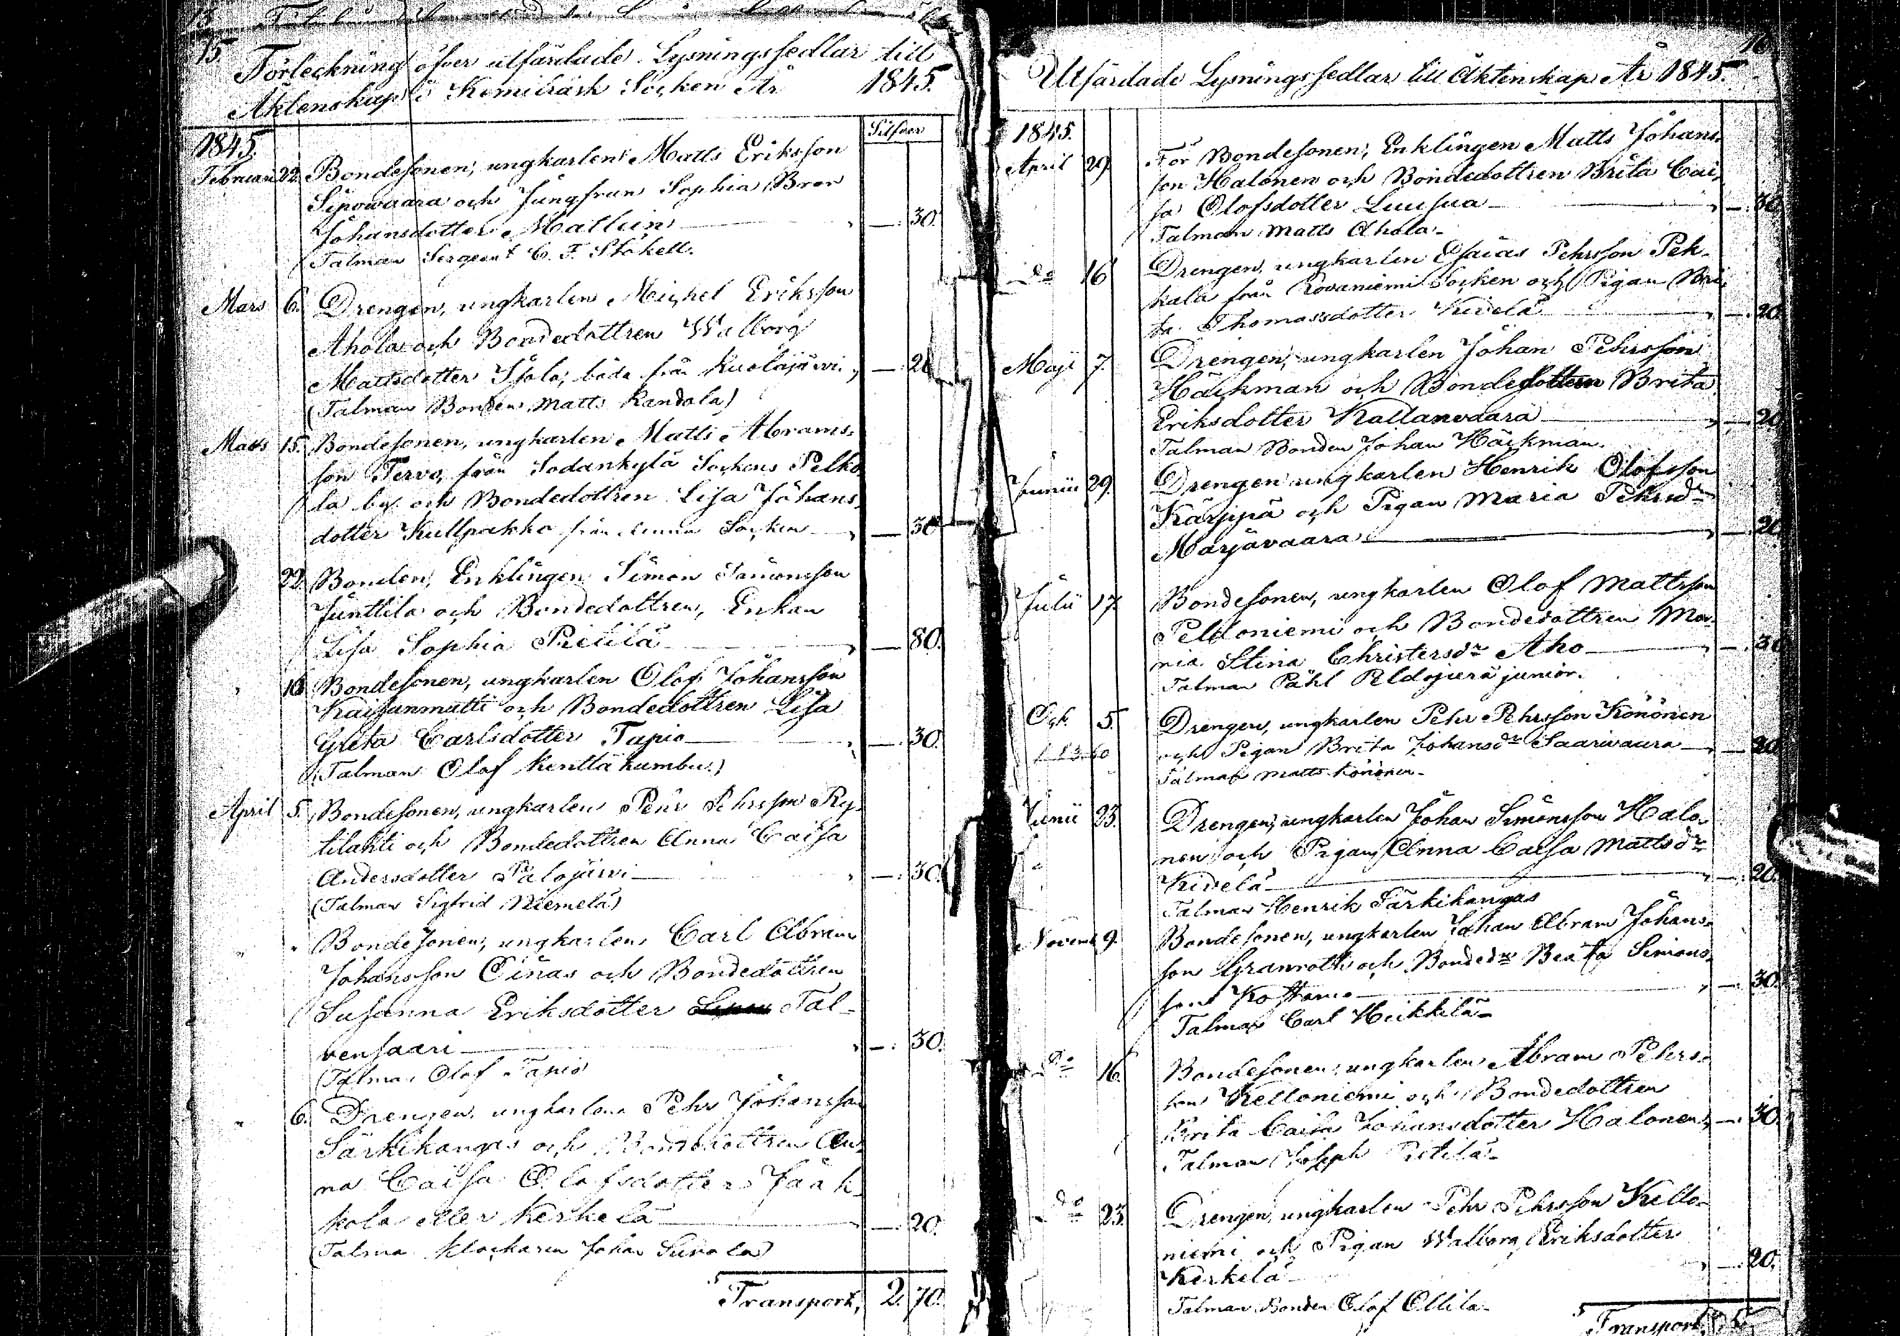 15.
Förteckning öfver utfärdade Lysningssedlar till
Äktenskap i Kemiträsk Socken År 1845.
Silfver
1845.
Februari 22. Bondesonen, ungkarlen Matts Eriksson
Sipowaara och Jungfrun Sophia Bror
Johansdotter Mallein — 30.
Talman Sergeant C. F. Ståkell.
Mars 6. Drengen, ungkarlen Michel Eriksson
Ahola och Bondedottren Walborg
Mattsdotter Isola, båda från Kuolajärvi — 20
(Talman Bonden Matts Kandola)
Mars 15. Bondesonen, ungkarlen Matts Abrams-
son Tervo, från Sodankylä Sockens Pelko
la by och Bondedottren Lisa Johans-
dotter Kullpakko från denna Socken — 30
22. Bonden, Enklingen Simon Simonsson
Junttila och Bondedottren, Enkan
Lisa Sophia Pietilä — 80.
16. Bondesonen, ungkarlen Olof Johansson
Kaisanmatti och Bondedottren Lisa
Greta Carlsdotter Tapio — 30.
(Talman Olof Kenttä)
April 5. Bondesonen, ungkarlen Pehr Pehrsson Ry-
tilahti och Bondedottren Anna Caisa
Andersdotter Palojärvi — 30.
(Talman Sigfrid Niemelä)
" Bondesonen, ungkarlen Carl Abram
Johansson Oinas och Bondedottren
Susanna Eriksdotter Tal-
vensaari — 30.
(Talman Olof Tapio
" 6. Drengen, ungkarlen Pehr Johansson
Särkikangas och Bondedottren An-
na Caisa Olofsdotter Jaak-
kola eller Kerkelä — 20.
(Talman Klockaren Johan Suvola)
Transport, 2. 70.
16
Utfärdade Lysningssedlar till Äktenskap År 1845.
1845.
April 29. För Bondesonen, Enklingen Matts Johans-
son Halonen och Bondedottren Brita Cai-
sa Olofsdotter Luusua — 30
Talman Matts Ahola
do 16 Drengen, ungkarlen Esaias Pehrsson Pek-
kala från Rovaniemi Socken och Pigan Bri-
ta Thomasdotter Kivelä — 20.
Maji 7. Drengen, ungkarlen Johan Pehrsson
Häckman och Bondedottren Brita
Eriksdotter Kallanvaara — 20
Talman Bonden Johan Häckman.
Junii 29. Drengen ungkarlen Henrik Olofsson
Karppa och Pigan Maria Pehrsdr
Marjavaara — 20
Julii 17. Bondesonen, ungkarlen Olof Mattsson
Peltoniemi och Bondedottren Ma-
ria Stina Christersdr Aho — 30
Talman Påhl Peldojerä junior.
5. Drengen, ungkarlen Pehr Pehrsson Könönen
och Pigan Brita Johansdr Saarivaara — 20
Talman Matts Könönen
Junii 23. Drengen, ungkarlen Johan Simonsson Halo-
nen och Pigan Anna Caisa Mattsdr
Kivelä — 20.
Talman Henrik Särkikangas
Novem 9. Bondesonen, ungkarlen Johan Abram Johans-
son Granroth och Bondedr Beata Simons-
Kostamo — 30.
Talman Carl Heikkilä
Do 16. Bondesonen, ungkarlen Abram Pehrs-
son Kelloniemi och Bondedottren
Brita Caisa Johansdotter Halonen — 30.
Talman Joseph Pietilä
do 23 Drengen, ungkarlen Pehr Pehrsson Kello-
niemi och Pigan Walborg Eriksdotter
Kerkelä — 20.
Talman Bonden Olof Ollila
Transport